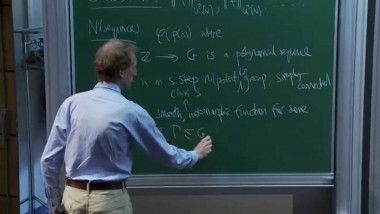 Nilsequences φ(p(n)) where
ℤ → G is a polynomial sequence
is an s step nilpotent group, simply connected
class s
smooth, automorphic function for some
Γ ≤ G